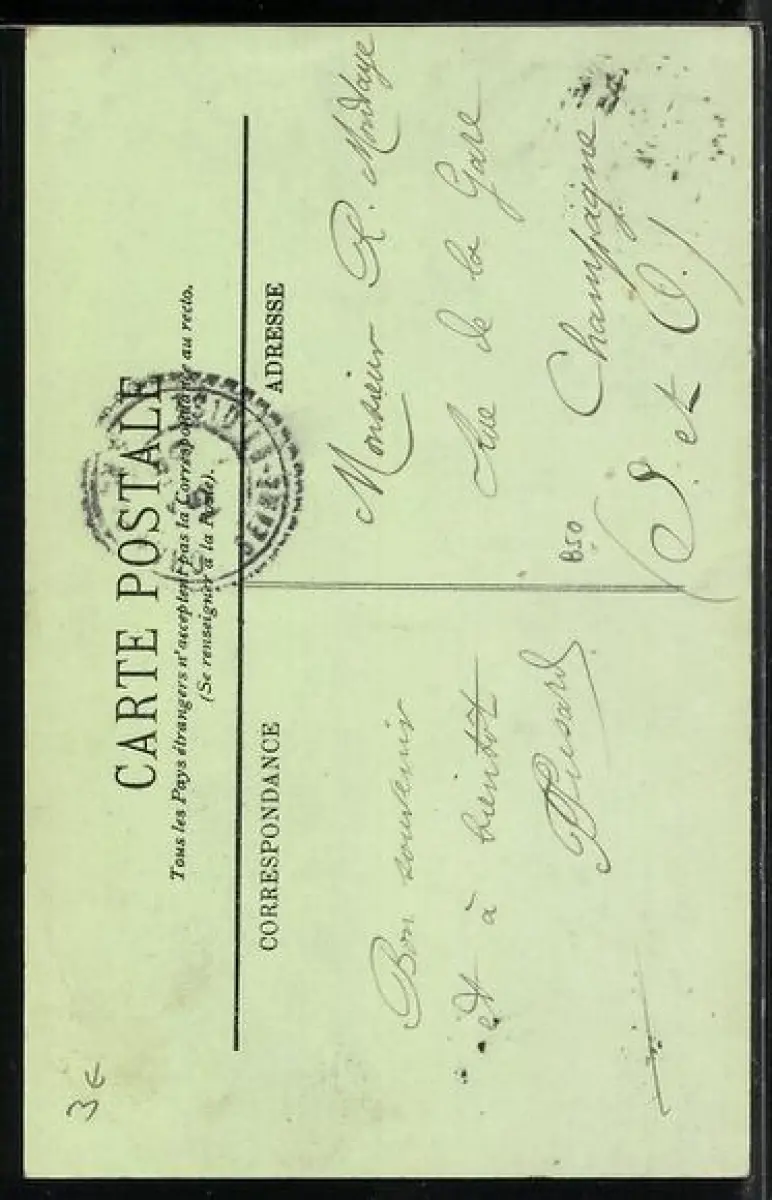 CARTE POSTALE
Tous les Pays étrangers n'acceptent pas la Correspondance au recto.
(Se renseigner à la Poste).
CORRESPONDANCE
ADRESSE
Bon souvenir
et à bientôt
Monsieur R. Mondaye
Rue de la Gare
Champagne
(S. et O.)
B50
3€